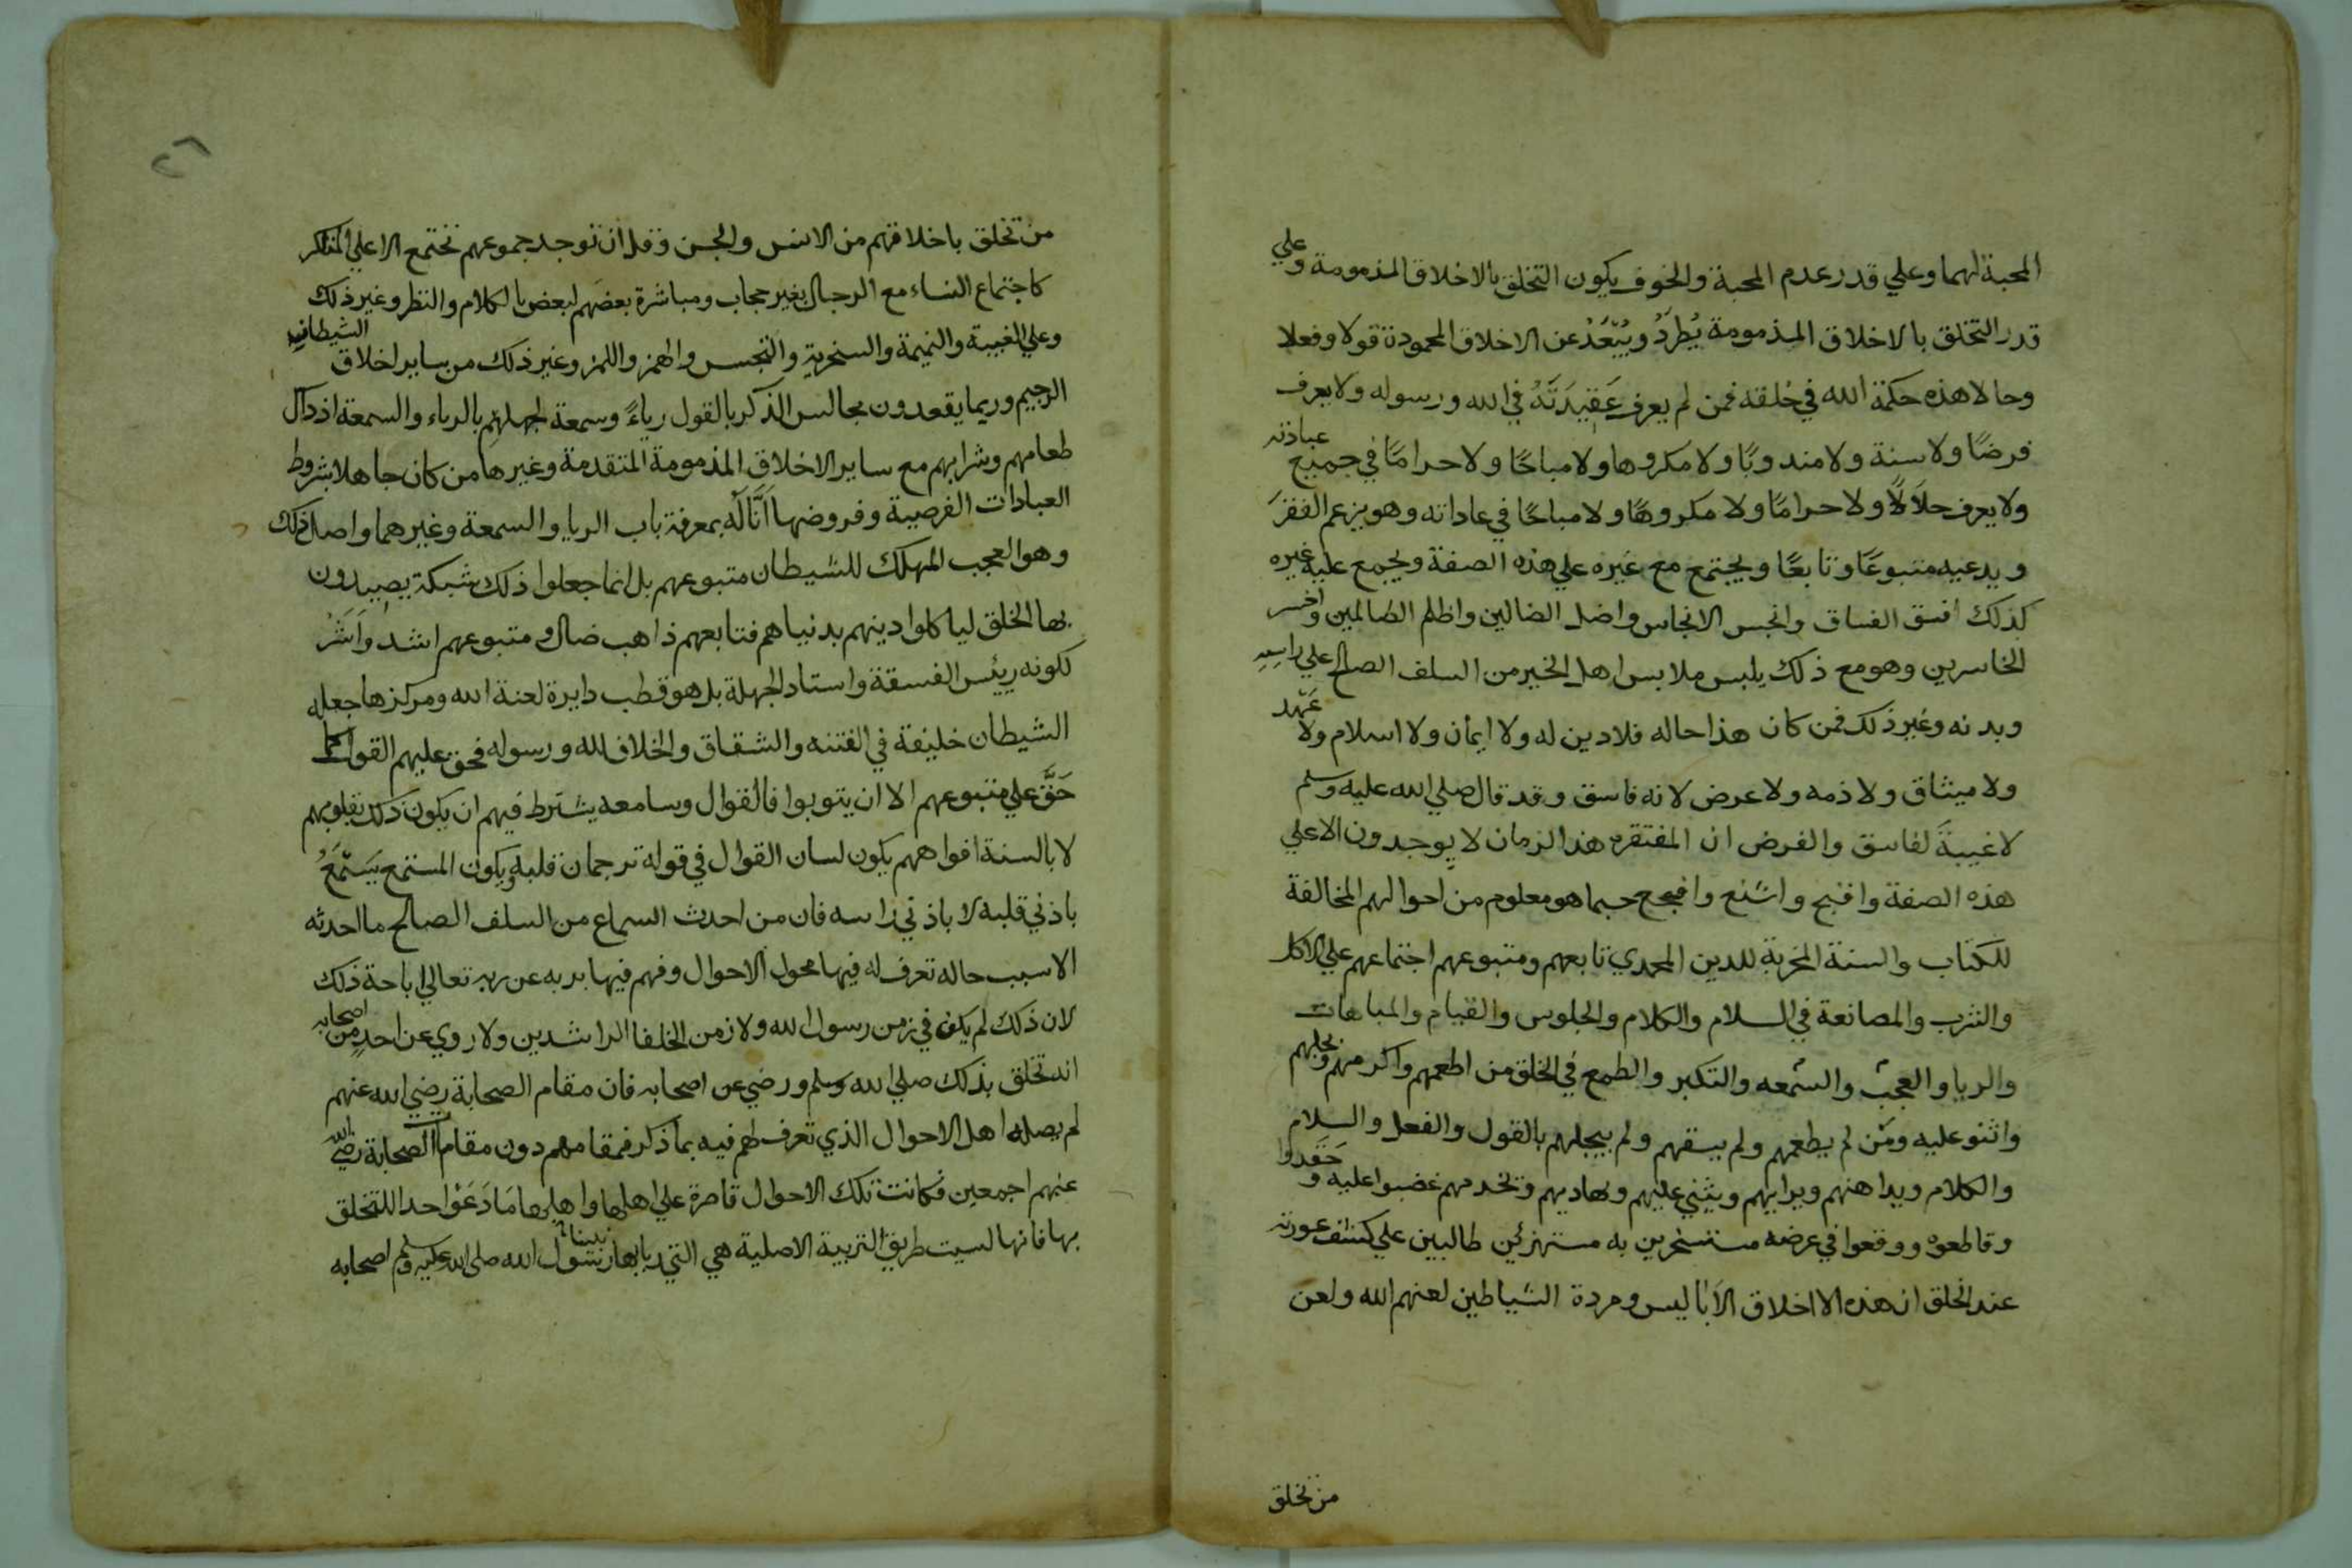 المحبة لهما وعلي قدر عدم المحبة والخوف يكون التخلق بالاخلاق المذمومة وعلي
قدر التخلق بالاخلاق المذمومة يُطردُ ويُبَّعَدُ عن الاخلاق المحمودة قولا وفعلا
وحالا هذه حكمة الله في خلقه فمن لم يعرف عَقِيدَتَهُ في الله ورسوله ولا يعرف
فرضًا ولا سنة ولا مندوبًا ولا مكروها ولا مباحًا ولا حرامًا في جميع عباذته
ولا يعرف حلاَلاً ولا حرامًا ولا مكروهًا ولا مباحًا في عاداته وهو يزعم الفقرَ
ويدعيه متبوعًا وتابعًا ويجتمع مع غيره علي هذه الصفة ويجمع عليه غيره
كذلك افسق الفساق وانجس الانجاس واضل الضالين واظلم الظالمين واخسر
الخاسرين وهو مع ذلك يلبس ملابس اهل الخير من السلف الصالح علي راسه
وبدنه وغير ذلك فمن كان هذا حاله فلا دين له ولا ايمأن ولا اسلام ولا عَهد
ولا ميثاق ولا ذمه ولا عرض لانه فاسق وقد قال صلي الله عليه وسلم
لا غيبةَ لفاسق والفرض ان المفتقره هذا الزمان لا يوجدون الا علي
هذه الصفة واقبح واشنع وافجع حسبما هو معلوم من احوالهم المخالفة
للكتاب والسنة المخربة للدين المحمدي تابعهم ومتبوعهم اجتماعهم علي الاكل
والشرب والمصانعة في السلام والكلام والجلوس والقيام والمباهات
والريا والعجب والسمعه والتكبر والطمع في الخلق من اطعمهم واكرمهم وبجلهم
واثنو عليه ومَن لم يطعمهم ولم يسقهم ولم يبجلهم بالقول والفعل والسلام
والكلام ويداهنهم ويرايهم ويثني عليهم ويهاديهم ويخدمهم غضبوا عليه وحَقَدوا
وقاطعوه ووقعوا في عرضه مستسخرين به مستهزئين طالبين علي كشف عورته
عند الخلق ان هذه الا اخلاق الاَباليس ومردة الشياطين لعنهم الله ولعن
من تخلق
من تخلق باخلاقهم من الانس والجن وقل ان توجد جموعهم تجتمع الا علي المناكر
كاجتماع النساء مع الرجال بغير حجاب ومباشرة بعضهم لبعض بالكلام والنظر وغير ذلك
وعلي الغيبة والنميمة والسخرية والتجسس والهمز واللمز وغير ذلك من ساير اخلاق الشيطان
الرجيم وربما يقعدون مجالس الذكر بالقول رياءً وسمعة لجهلهم بالرياء والسمعة اذ دال
طعامهم وشرابهم مع ساير الاخلاق المذمومة المتقدمة وغيرها من كان جاهلا بشروط
العبادات الفرضية وفروضها اَنَّالَه بمعرفة باب الريا والسمعة وغيرهما واصل ذلك
وهو العجب المهلك للشيطان متبوعهم بل انما جعلوا ذلك شبكة يصيدون
بها الخلق لياكلوا دينهم بدنياهم فتابعهم ذاهب ضال ومتبوعهم اشد واَشَرُ
لكونه رييس الفسقة واستاد الجهلة بل هو قطب دايرة لعنة الله ومركزها جعله
الشيطان خليفة في الفتنه والشقاق والخلاف لله ورسوله فحق عليهم القول كما
حَقَّ علي متبوعهم الا ان يتوبوا فالقوال وسامعه يشترط فيهم ان يكون ذلك بقلوبهم
لا بالسنة افواههم يكون لسان القوال في قوله ترجمان قلبه ويكون المستمع يَستمعُ
باذني قلبه لا باذني راسه فان من احدث السماع من السلف الصالح ما احدثه
الا سبب حاله تعرف له فيها محول الاحوال وفهم فيها بربه عن ربه تعالي اباحة ذلك
لان ذلك لم يكن في زمن رسول الله ولا زمن الخلفا الراشدين ولا روي عن احدٍ من اصحابه
انه تخلق بذلك صلي الله وسلم ورضي عن اصحابه فان مقام الصحابة رضي الله عنهم
لم يصله اهل الاحوال الذي تعرف لهم فيه بما ذكر فمقامهم دون مقام الصحابة رضي الله
عنهم اجمعين فكانت تلك الاحوال قاصرة علي اهلها واهلها مَا دَعَوْا احدا للتخلق
بها فانها ليست طريق التربية الاصلية هي التي ربا بها نبينا رسول الله صلى الله عليه وسلم اصحابه